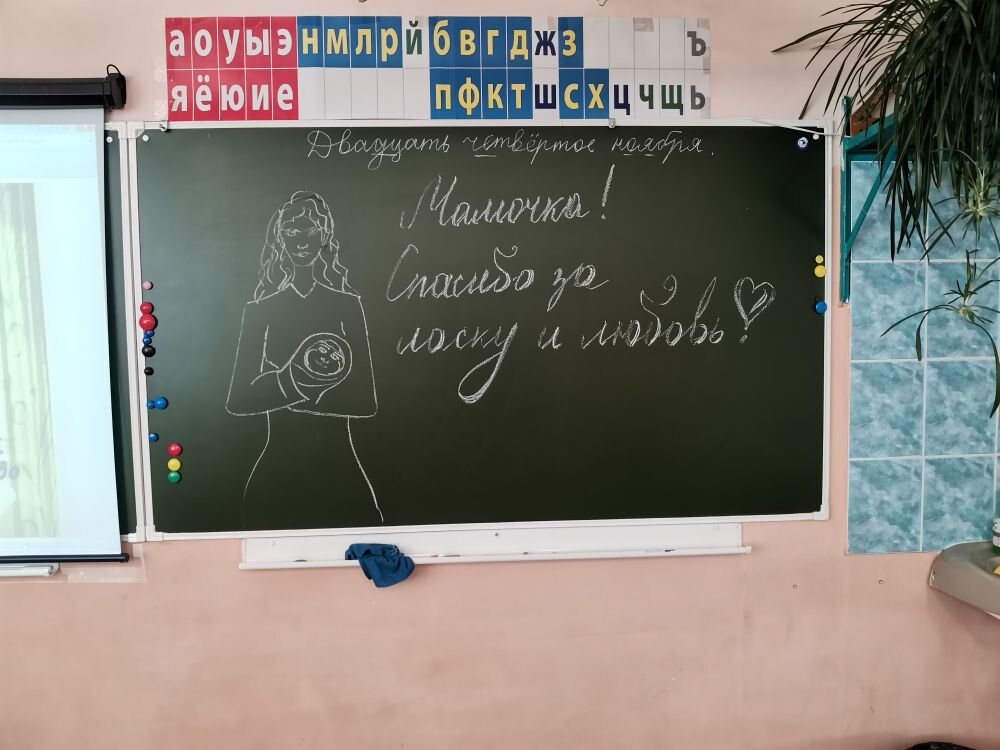 а о у ы э н м л р й б в г д ж з ъ
я ё ю и е п ф к т ш с х ц ч щ ь
Двадцать четвёртое ноября.
Мамочка!
Спасибо за
ласку и любовь!